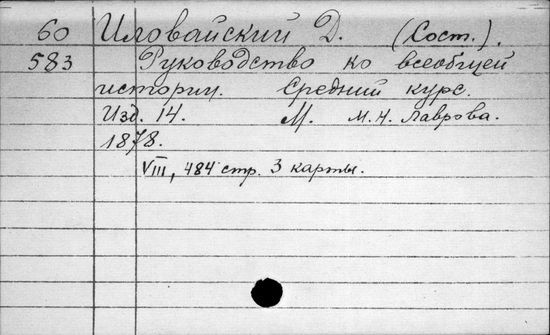 60 Иловайский Д. (Сост.).
583 Руководство ко всеобщей
истории. Средний курс.
Изд. 14. М. М.Н. Лаврова.
1878.
VIII, 484 стр. 3 карты.